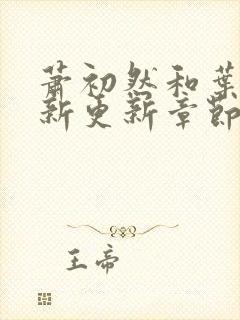 萧初然和叶
新更新章节
王帝